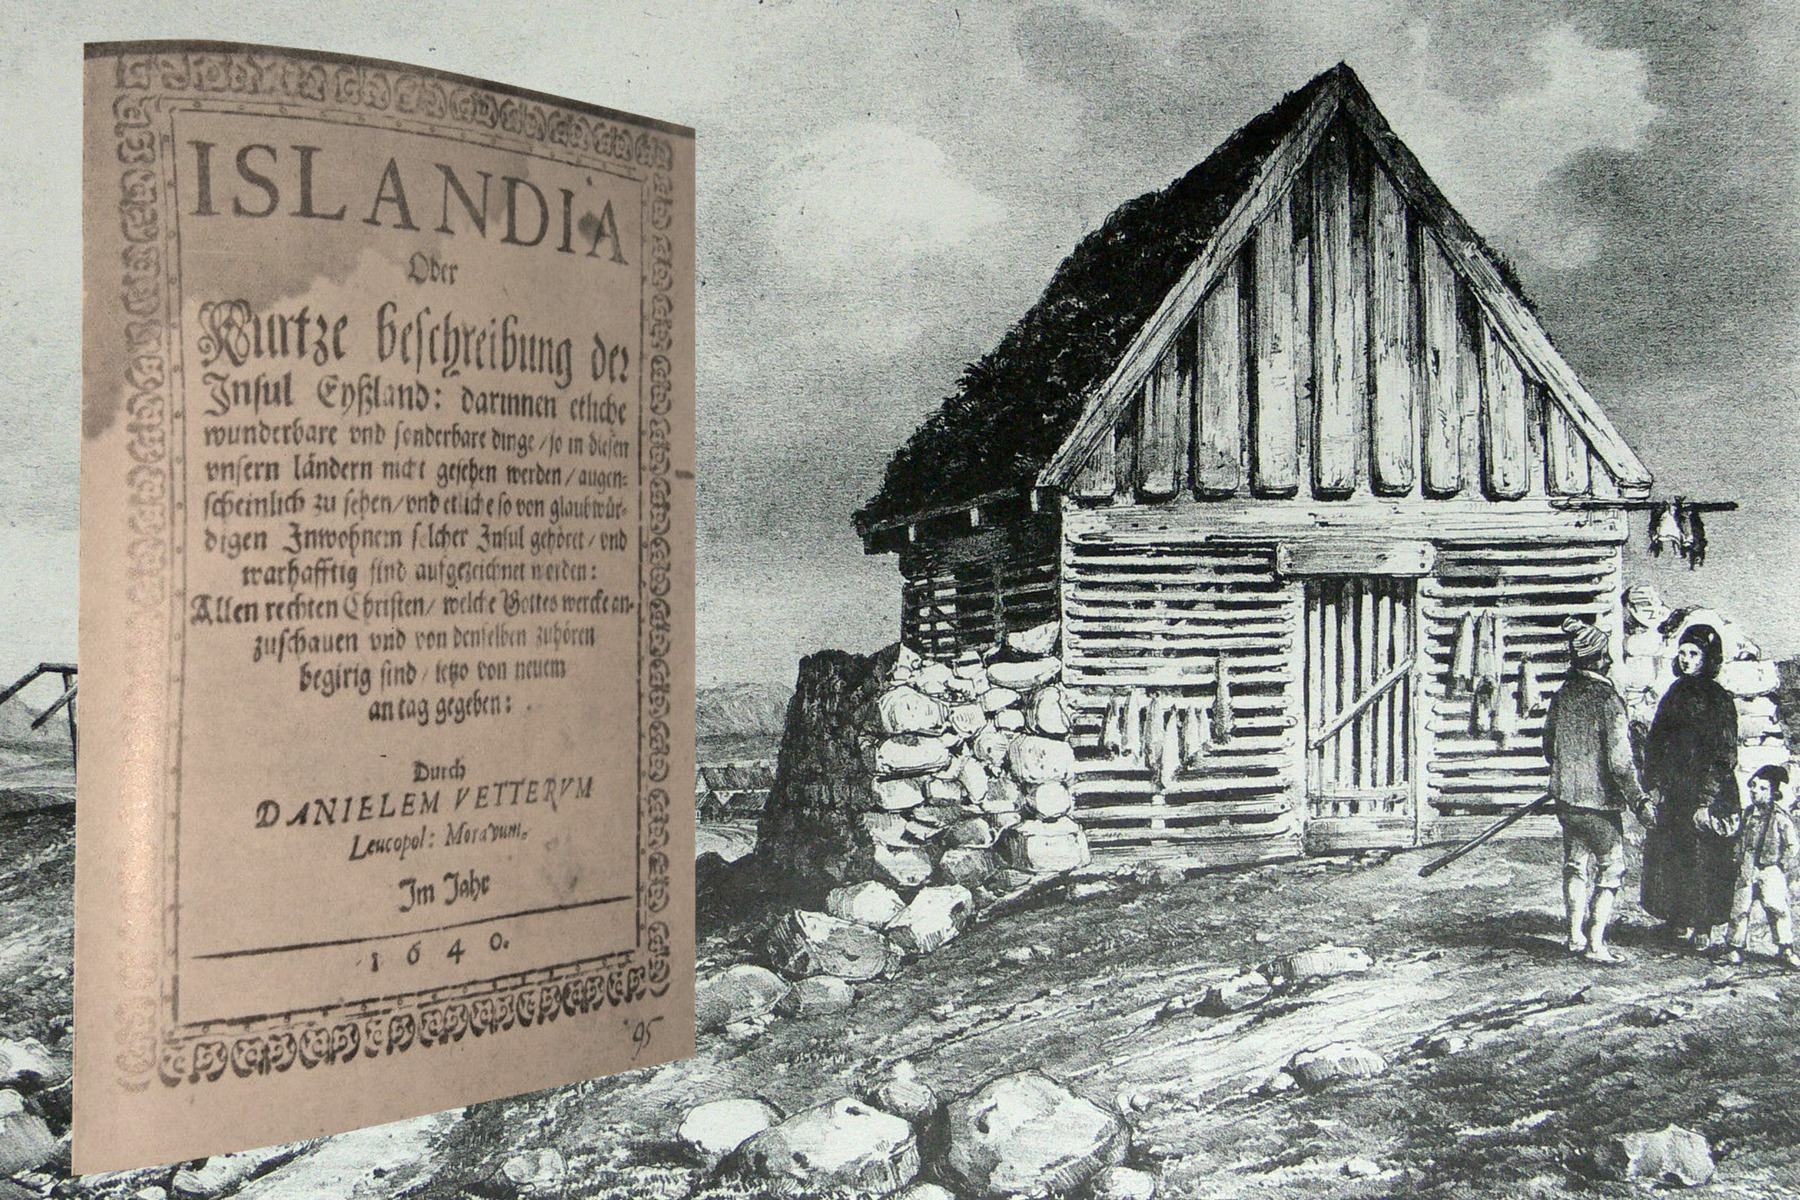 ISLANDIA
Oder
Kurtze beschreibung der
Insul Eyßland: darinnen etliche
wunderbare vnd sonderbare dinge / so in diesen
vnsern ländern nicht gesehen werden / augen-
scheinlich zu sehen / vnd etliche so von glaubwür-
digen Inwohnern solcher Insul gehöret / vnd
warhafftig sind aufgezeichnet worden:
Allen rechten Christen / welche Gottes wercke an-
zuschauen vnd von denselben zuhören
begirig sind / jetzo von neuem
an tag gegeben:
Durch
DANIELEM VETTERVM
Leucopol: Moravum.
Im Jahr
1640.
95